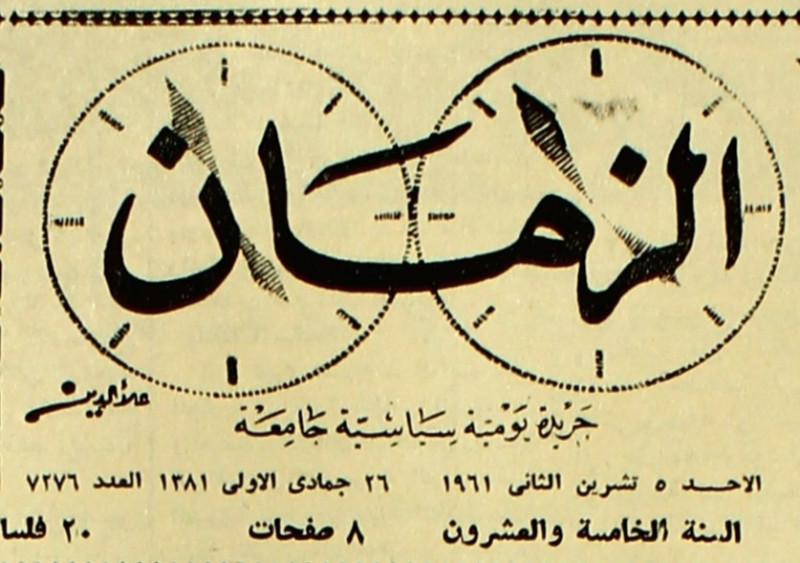 الزمان
علاءالدين
جَريدة يَوميَة سِيَاسِيّة جَامِعَة
الاحـــد ٥ تشرين الثانى ١٩٦١ ٢٦ جمادى الاولى ١٣٨١ العدد ٧٢٧٦
السنة الخامسة والعشرون ٨ صفحات ٢٠ فلسا